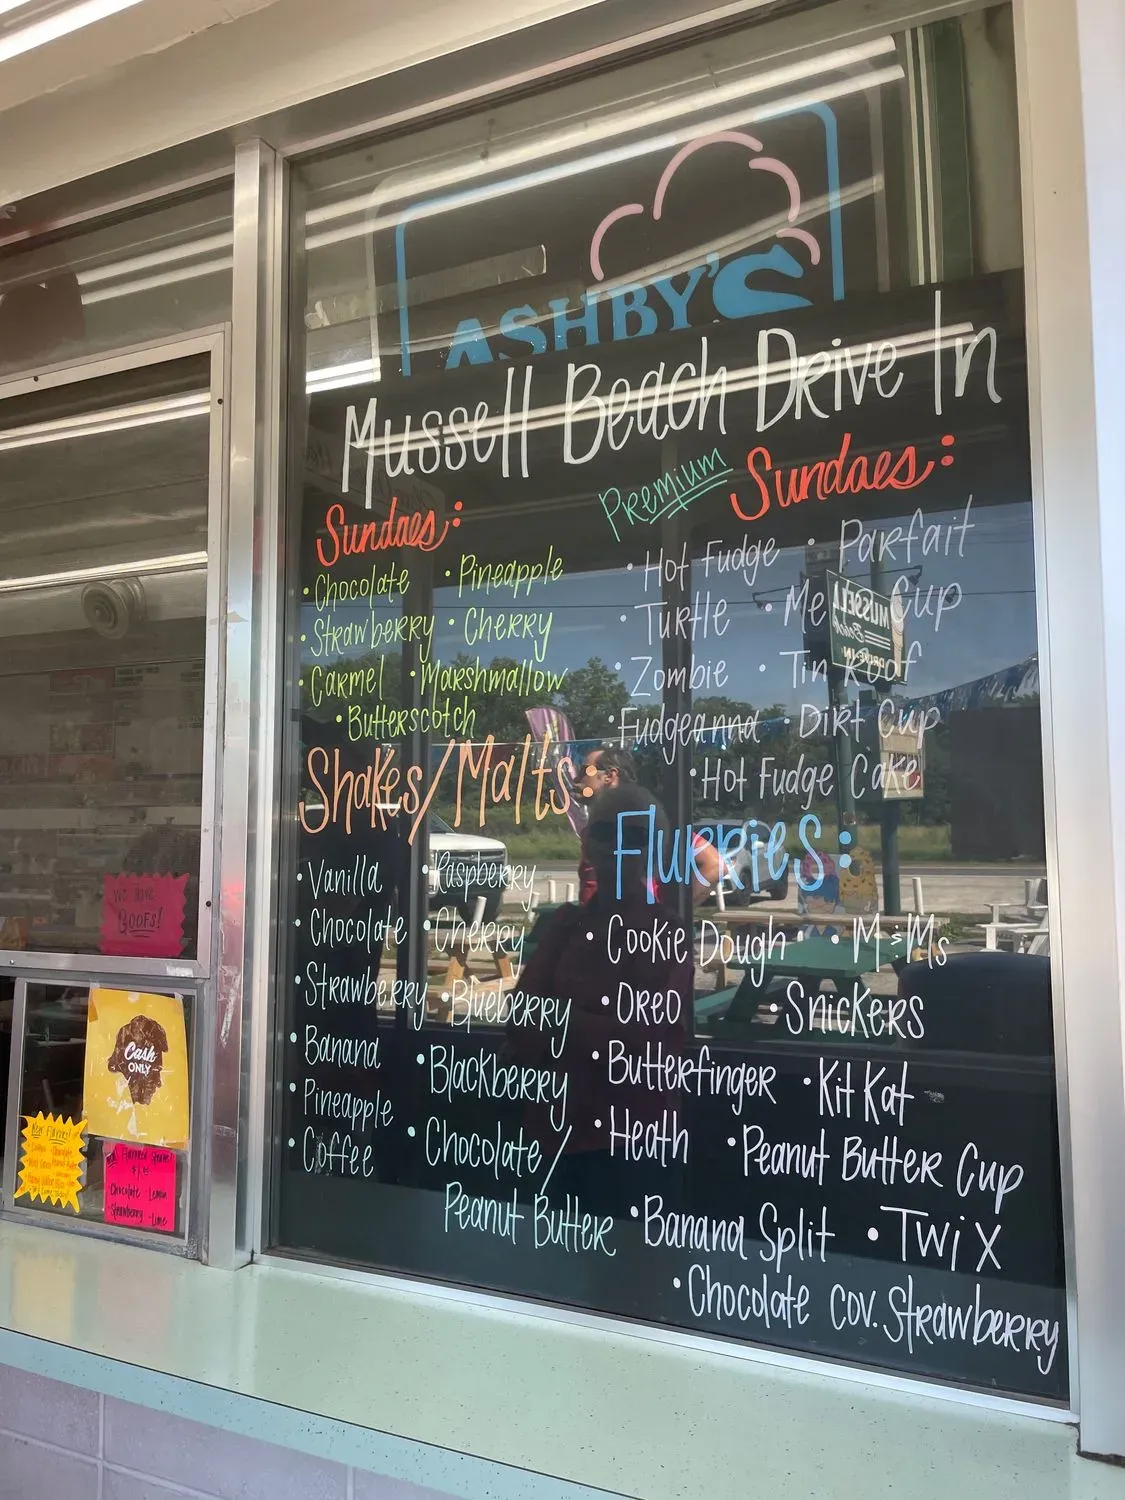 ASHBY'S
Mussell Beach Drive In
Sundaes:
• Chocolate • Pineapple
• Strawberry • Cherry
• Carmel • Marshmallow
• Butterscotch
Premium Sundaes:
• Hot Fudge • Parfait
• Turtle • Me Cup
• Zombie • Tin Roof
• Fudgeanna • Dirt Cup
• Hot Fudge Cake
Shakes/Malts:
• Vanilla • Raspberry
• Chocolate • Cherry
• Strawberry • Blueberry
• Banana • Blackberry
• Pineapple • Chocolate/
• Coffee Peanut Butter
Flurries:
• Cookie Dough • M&Ms
• Oreo • Snickers
• Butterfinger • Kit Kat
• Heath • Peanut Butter Cup
• Banana Split • Twix
• Chocolate cov. Strawberry
MUSSELL
Beach
DRIVE-IN
WE HAVE
GOOFS!
Cash
ONLY
Chocolate - Lemon
Strawberry - Lime